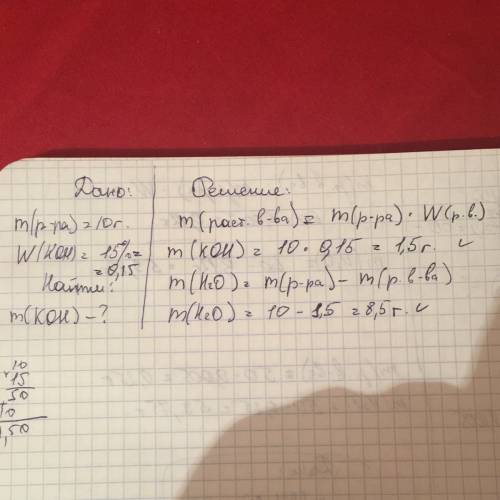 Дано:
m(р-ра) = 10 г.
W(KOH) = 15% =
= 0,15
Найти:
m(KOH) - ?
Решение:
m(раст. в-ва) = m(р-ра) · W(р.в.)
m(KOH) = 10 · 0,15 = 1,5 г. ✓
m(H2O) = m(р-ра) - m(р. в-ва)
m(H2O) = 10 - 1,5 = 8,5 г. ✓
10
15
50
10
1,50